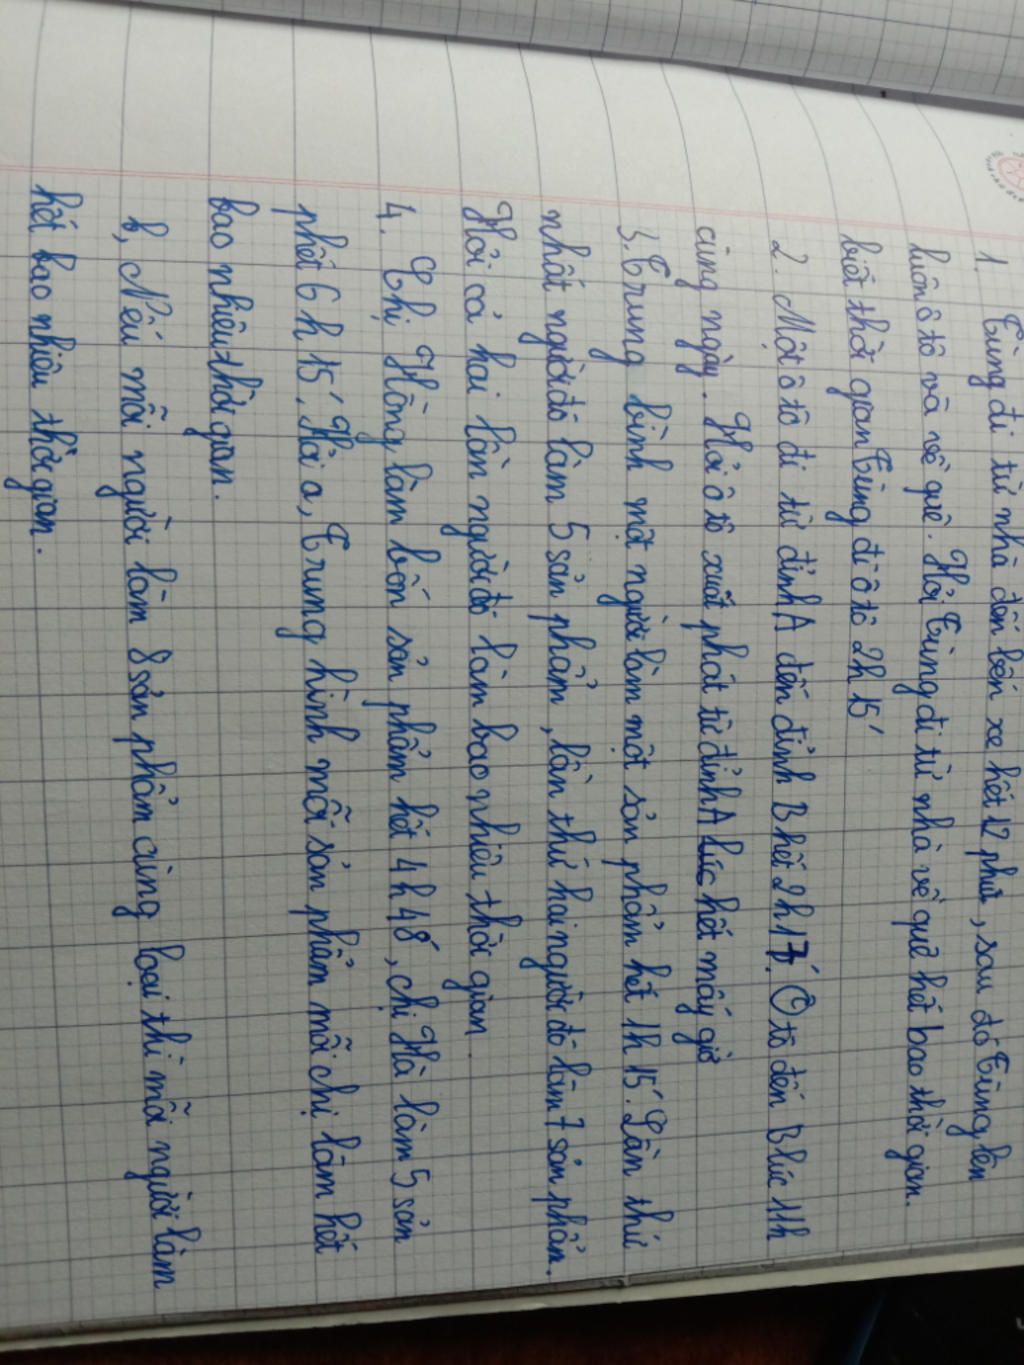 1. Tùng đi từ nhà đến bến xe hết 12 phút, sau đó Tùng lên
luôn ô tô và về quê. Hỏi Tùng đi từ nhà về quê hết bao thời gian.
biết thời gian Tùng đi ô tô 2h 15'
2. Một ô tô đi từ đỉnh A đến đỉnh B hết 2h 17'. Ô tô đến B lúc 11h
cùng ngày. Hỏi ô tô xuất phát từ đỉnh A lúc hết mấy giờ
3. Trung bình một người làm một sản phẩm hết 1h 15'. Lần thứ
nhất người đó làm 5 sản phẩm, lần thứ hai người đó làm 7 sản phẩm.
Hỏi cả hai lần người đó làm bao nhiêu thời gian.
4. Chị Hồng làm bốn sản phẩm hết 4h 48', chị Hà làm 5 sản
phết 6h 15'. Hỏi a, Trung hình mỗi sản phẩm mỗi chị làm hết
bao nhiêu thời gian.
b, Nếu mỗi người làm 8 sản phẩm cùng loại thì mỗi người làm
hết bao nhiêu thời gian.